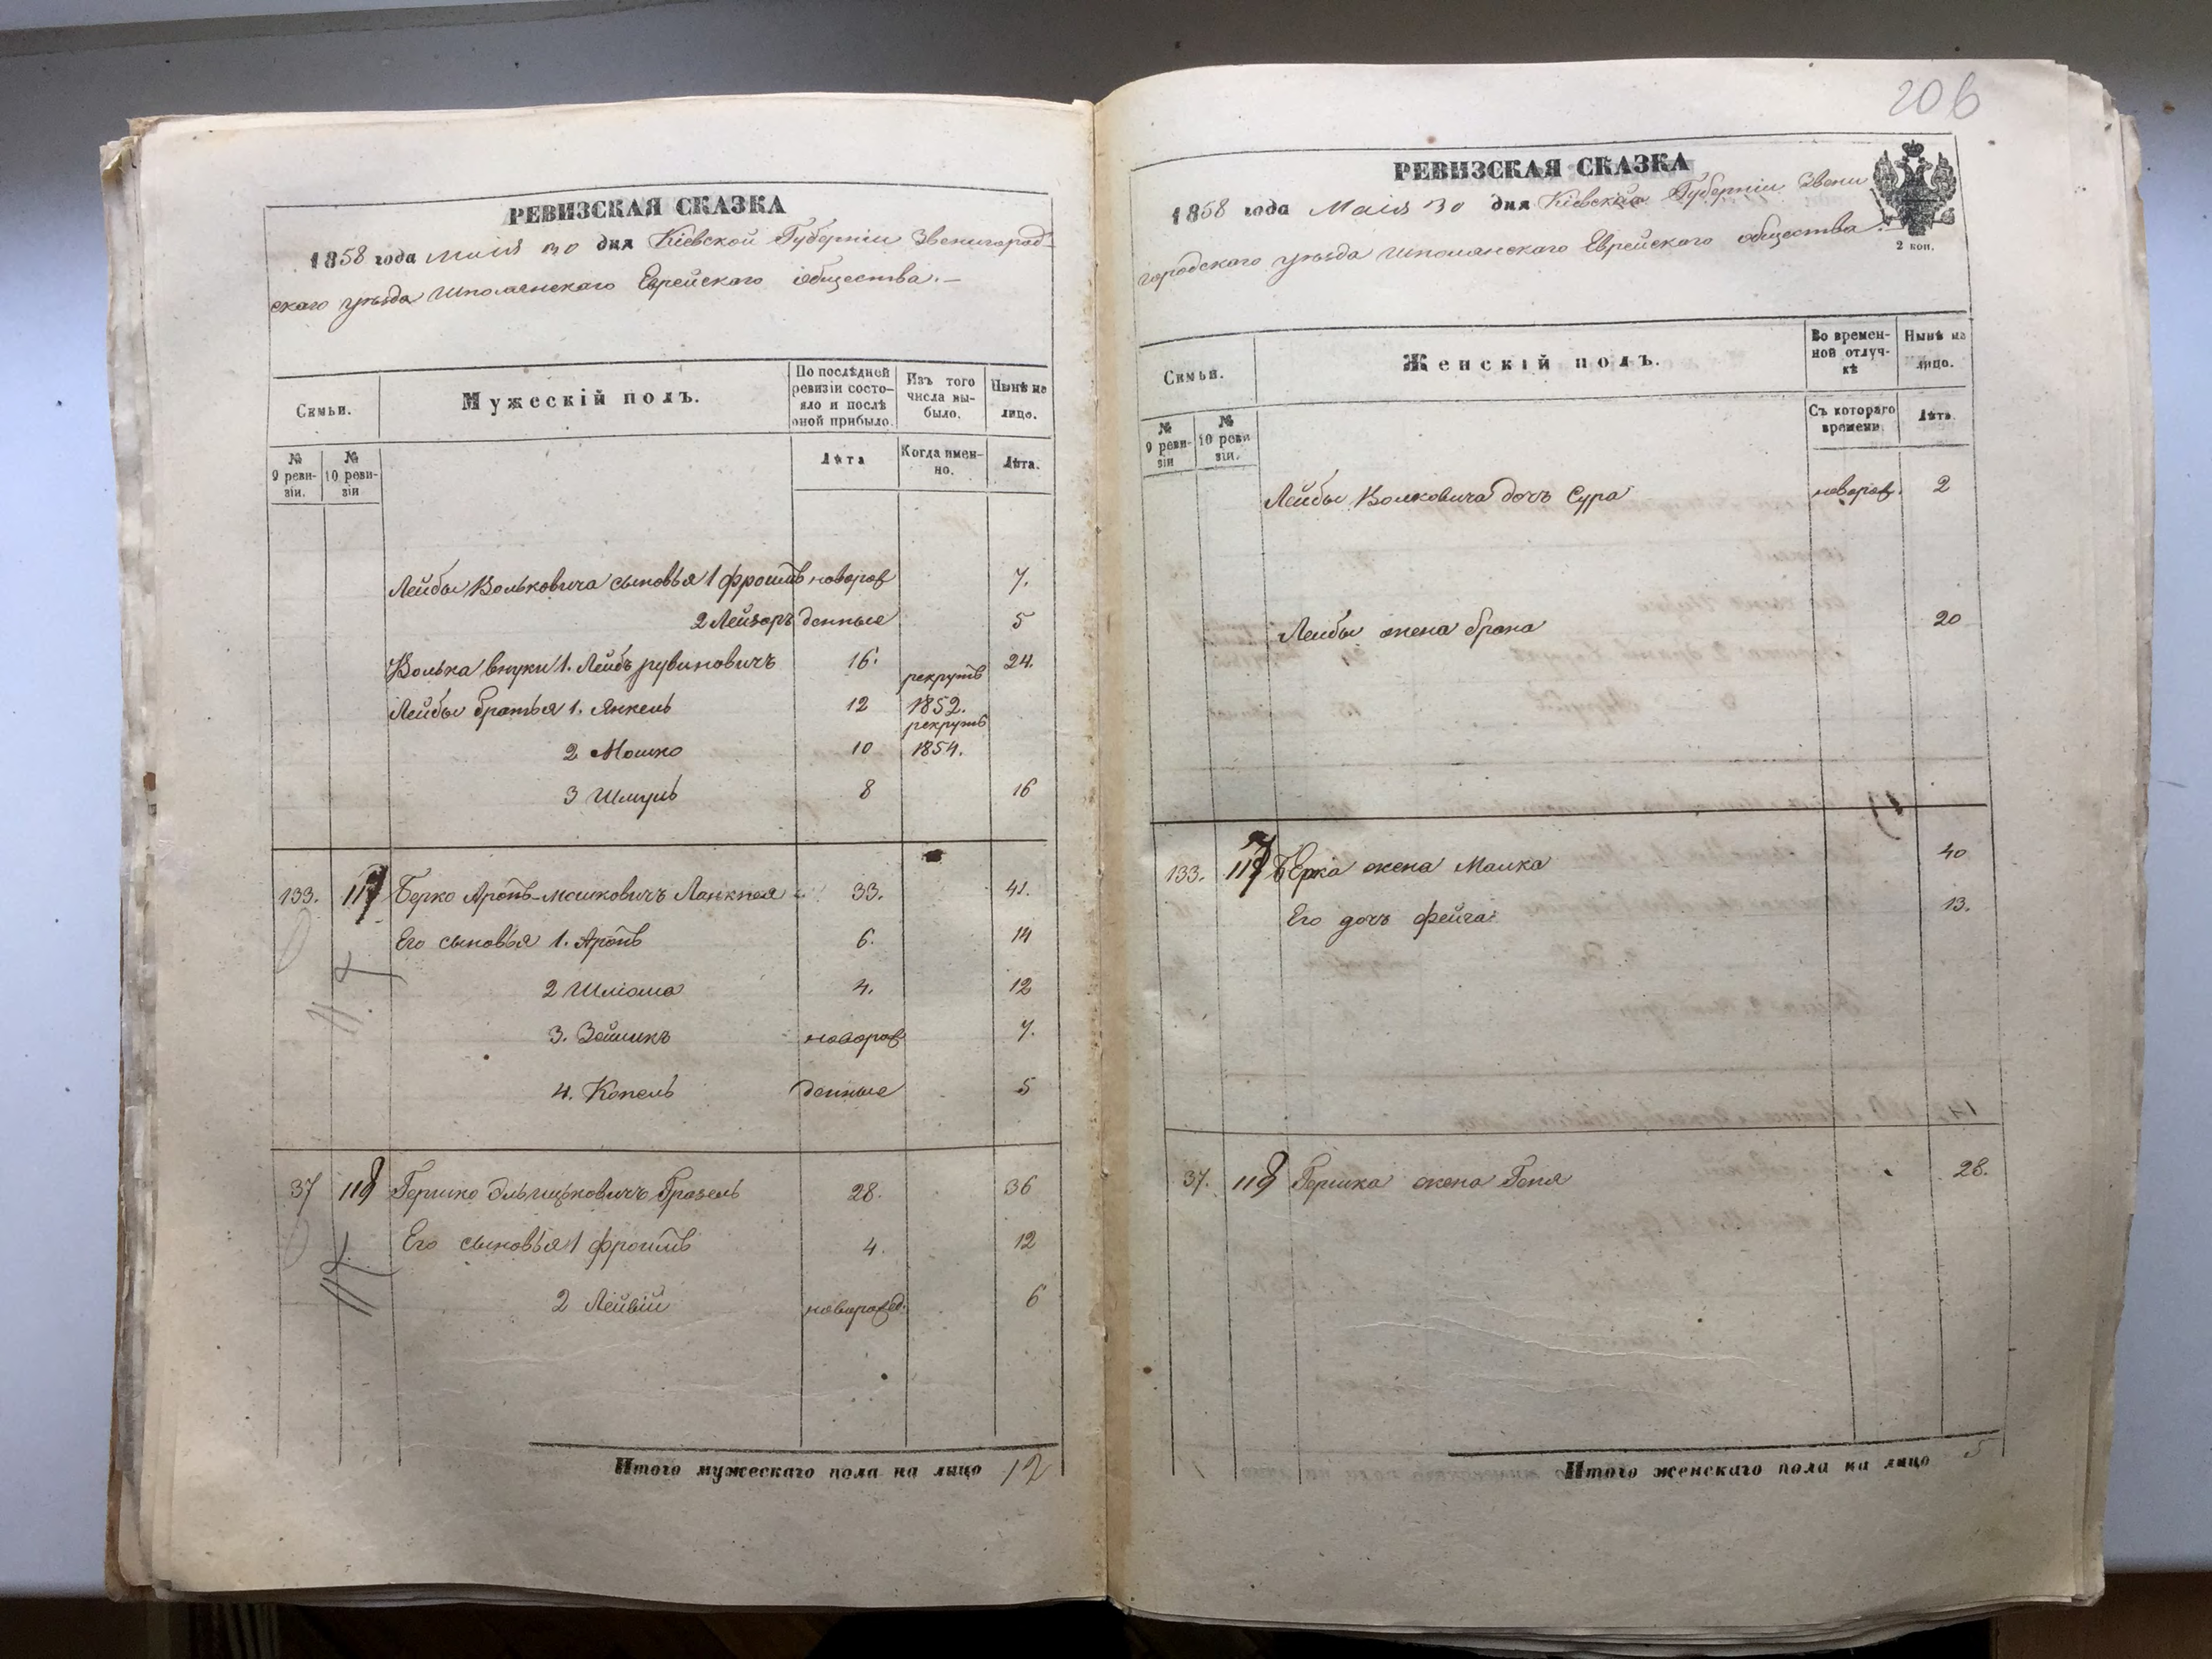 РЕВИЗСКАЯ СКАЗКА
1858 года Маія 30 дня Кіевской Губерніи Звенигород-
скаго уѣзда Шполянскаго Еврейскаго общества.—
Семьи.
Мужескій полъ.
По послѣдней ревизіи состо-
яло и послѣ оной прибыло.
Изъ того числа вы-
было.
Нынѣ на лицо.
№ 9 реви-
зіи.
№ 10 реви-
зіи
Лѣта
Когда имен-
но.
Лѣта.
Лейбы Вольковича сыновья 1 Фроимъ новорож 7.
2 Лейзоръ денные 5
Волька внуки 1. Лейбъ Рувиновичъ 16. 24.
Лейбы братья 1. Янкель 12 рекрутъ 1852.
2 Мошко 10 рекрутъ 1854.
3 Шмуль 8 16
133. 117 Берко Аронъ-Мошковичъ 33. 41.
Его сыновья 1. Аронъ 6. 14
2 Шліома 4. 12
3. Зейликъ новорож 7.
4. Копель денные 5
37 118 Гершко Эльицковичъ 28. 36
Его сыновья 1 Фроимъ 4. 12
2 Лейвій новорожд. 6
Итого мужескаго пола на лицо 12
206
РЕВИЗСКАЯ СКАЗКА
1858 года Маія 30 дня Кіевской Губерніи Звени
городскаго уѣзда Шполянскаго Еврейскаго общества.—
2 коп.
Семьи.
Женскій полъ.
Во времен-
ной отлуч-
кѣ
Нынѣ на лицо.
№ 9 реви-
зіи
№ 10 реви
зіи.
Съ котораго времени.
Лѣта.
Лейбы Вольковича дочь Сура новорож. 2
Лейбы жена Брана 20
133. 117 Берка жена Малка 40
Его дочь Фейга 13.
37. 118 Гершка жена Геня 28.
Итого женскаго пола на лицо 5